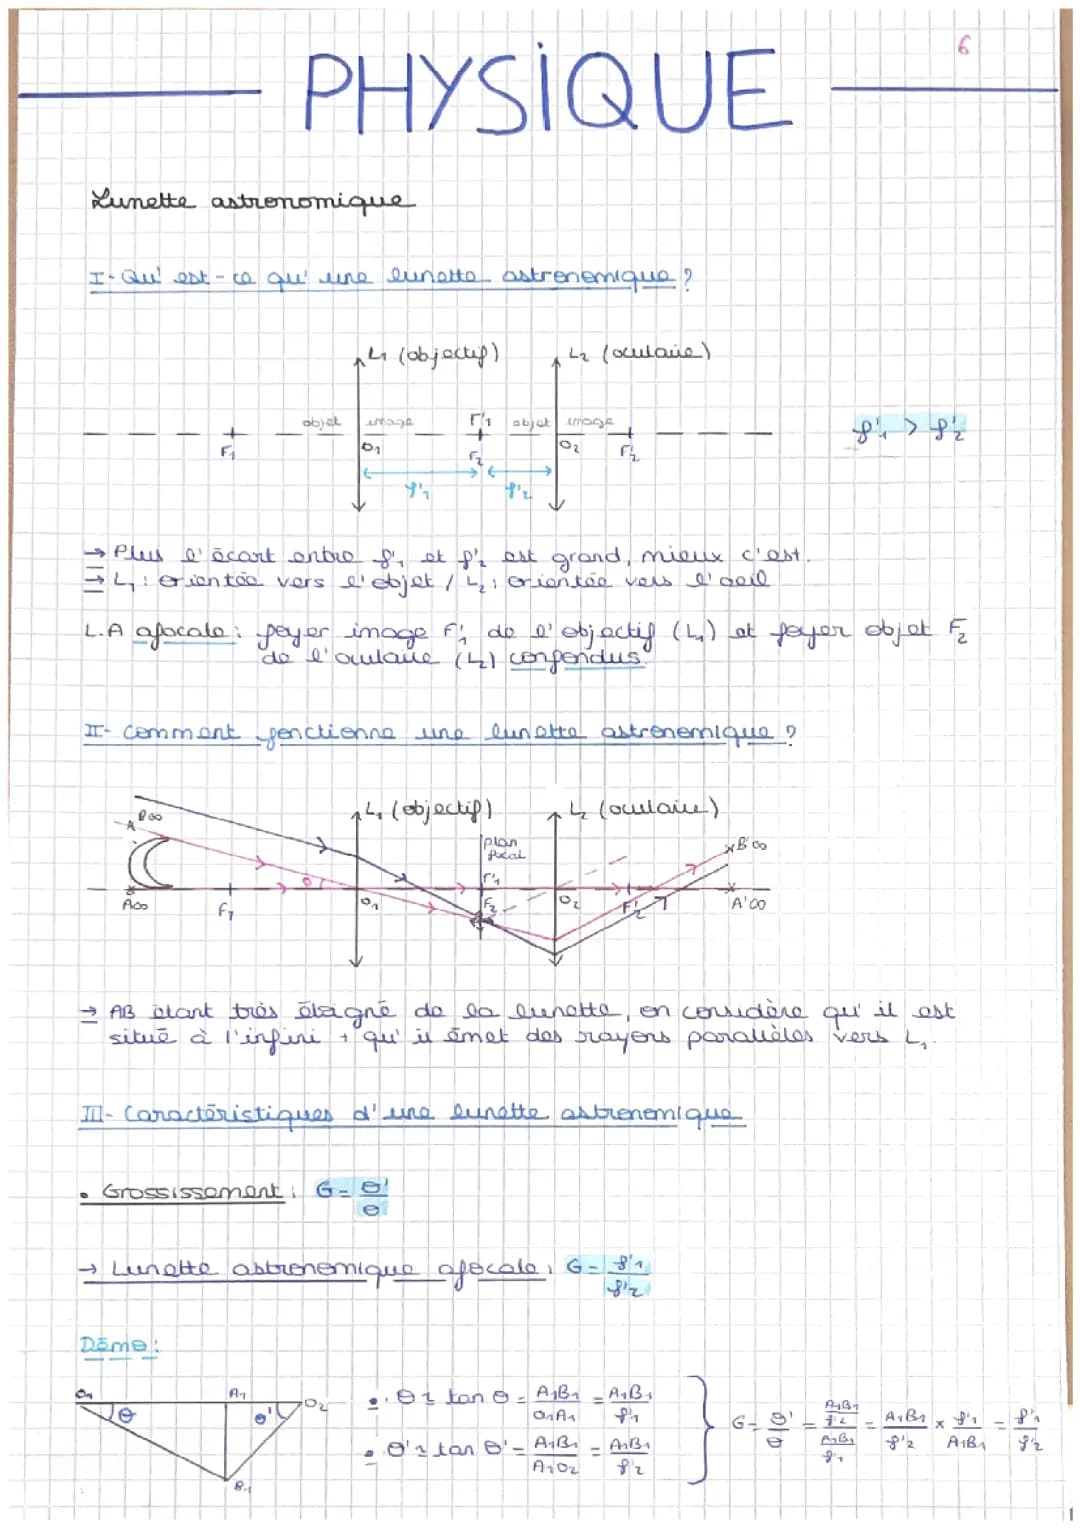 6
PHYSIQUE
Lunette astronomique
I- Qu'est-ce qu'une lunette astronomique ?
L1 (objectif) L2 (oculaire)
objet image F'1 objet image
F1 O1 F2 O2 F'2
f'1 > f'2
f'1 f'2
→ Plus l'écart entre f'1 et f'2 est grand, mieux c'est.
→ L1 : orientée vers l'objet / L2 : orientée vers l'oeil
L.A afocale : foyer image F'1 de l'objectif (L1) et foyer objet F2
de l'oculaire (L2) confondus
II- Comment fonctionne une lunette astronomique ?
L1 (objectif) L2 (oculaire)
B∞
plan
focal
B'∞
θ F'1
A∞ F1 O1 F2 O2 F'2 A'∞
→ AB étant très éloigné de la lunette, on considère qu'il est
situé à l'infini + qu'il émet des rayons parallèles vers L1.
III- Caractéristiques d'une lunette astronomique
• Grossissement : G = θ'/θ
→ Lunette astronomique afocale : G = f'1/f'2
Démo :
O1 A1 O2
θ θ'
B1
• θ ≈ tan θ = A1B1/O1A1 = A1B1/f'1
• θ' ≈ tan θ' = A1B1/A1O2 = A1B1/f'2
G = θ'/θ = (A1B1/f'2)/(A1B1/f'1) = A1B1/f'2 × f'1/A1B1 = f'1/f'2